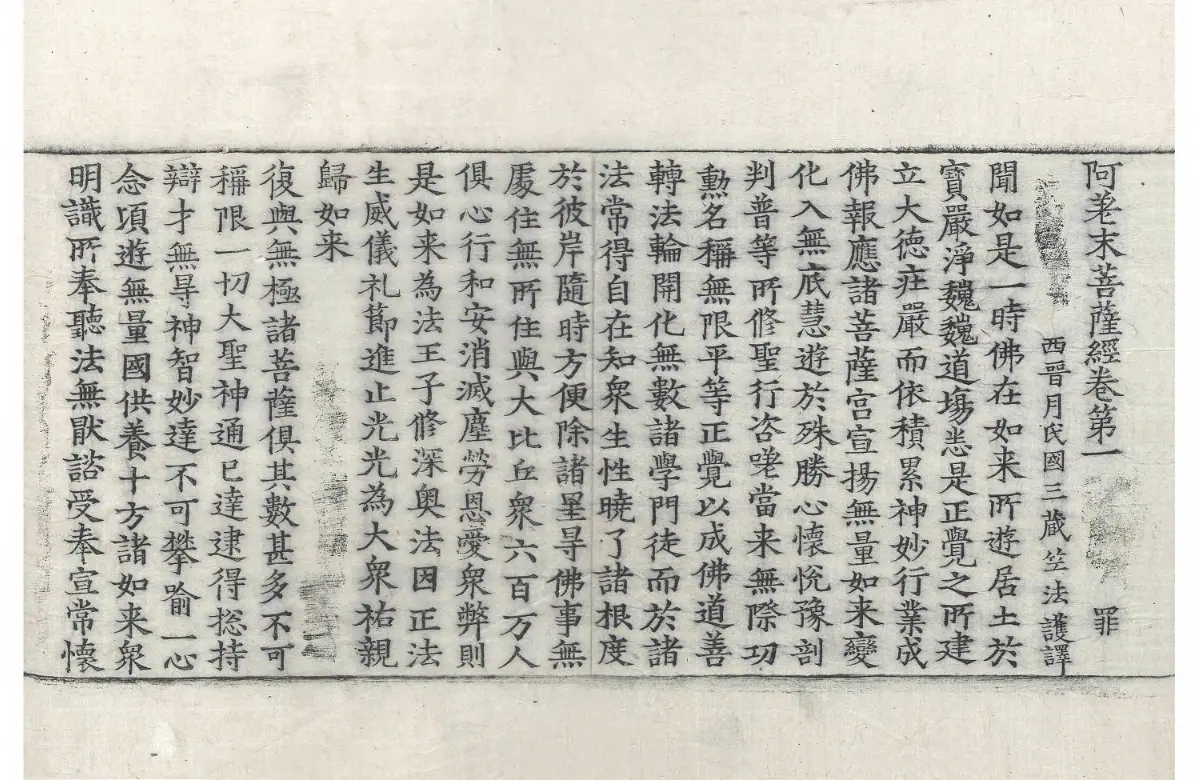 阿差末菩薩經卷第一 罪
西晉月氏國三藏竺法護譯
聞如是一時佛在如来所遊居土於
寶嚴淨巍巍道場悉是正覺之所建
立大德㽵嚴而依積累神妙行業成
佛報應諸菩薩宮宣揚無量如来變
化入無底慧遊於殊勝心懷悅豫剖
判普等所修聖行咨嗟當来無際功
勲名稱無限平等正覺以成佛道善
轉法輪開化無數諸學門徒而於諸
法常得自在知衆生性曉了諸根度
於彼岸隨時方便除諸罣㝵佛事無
處住無所住與大比丘衆六百万人
俱心行和安消滅塵勞恩愛衆弊則
是如来為法王子修深奧法因正法
生威儀礼節進止光光為大衆祐親
歸如来
復與無極諸菩薩俱其數甚多不可
稱限一切大聖神通已達逮得㧾持
辯才無㝵神智妙達不可攀喻一心
念項遊無量國供養十方諸如来衆
明識所奉聽法無猒諮受奉宣常懷